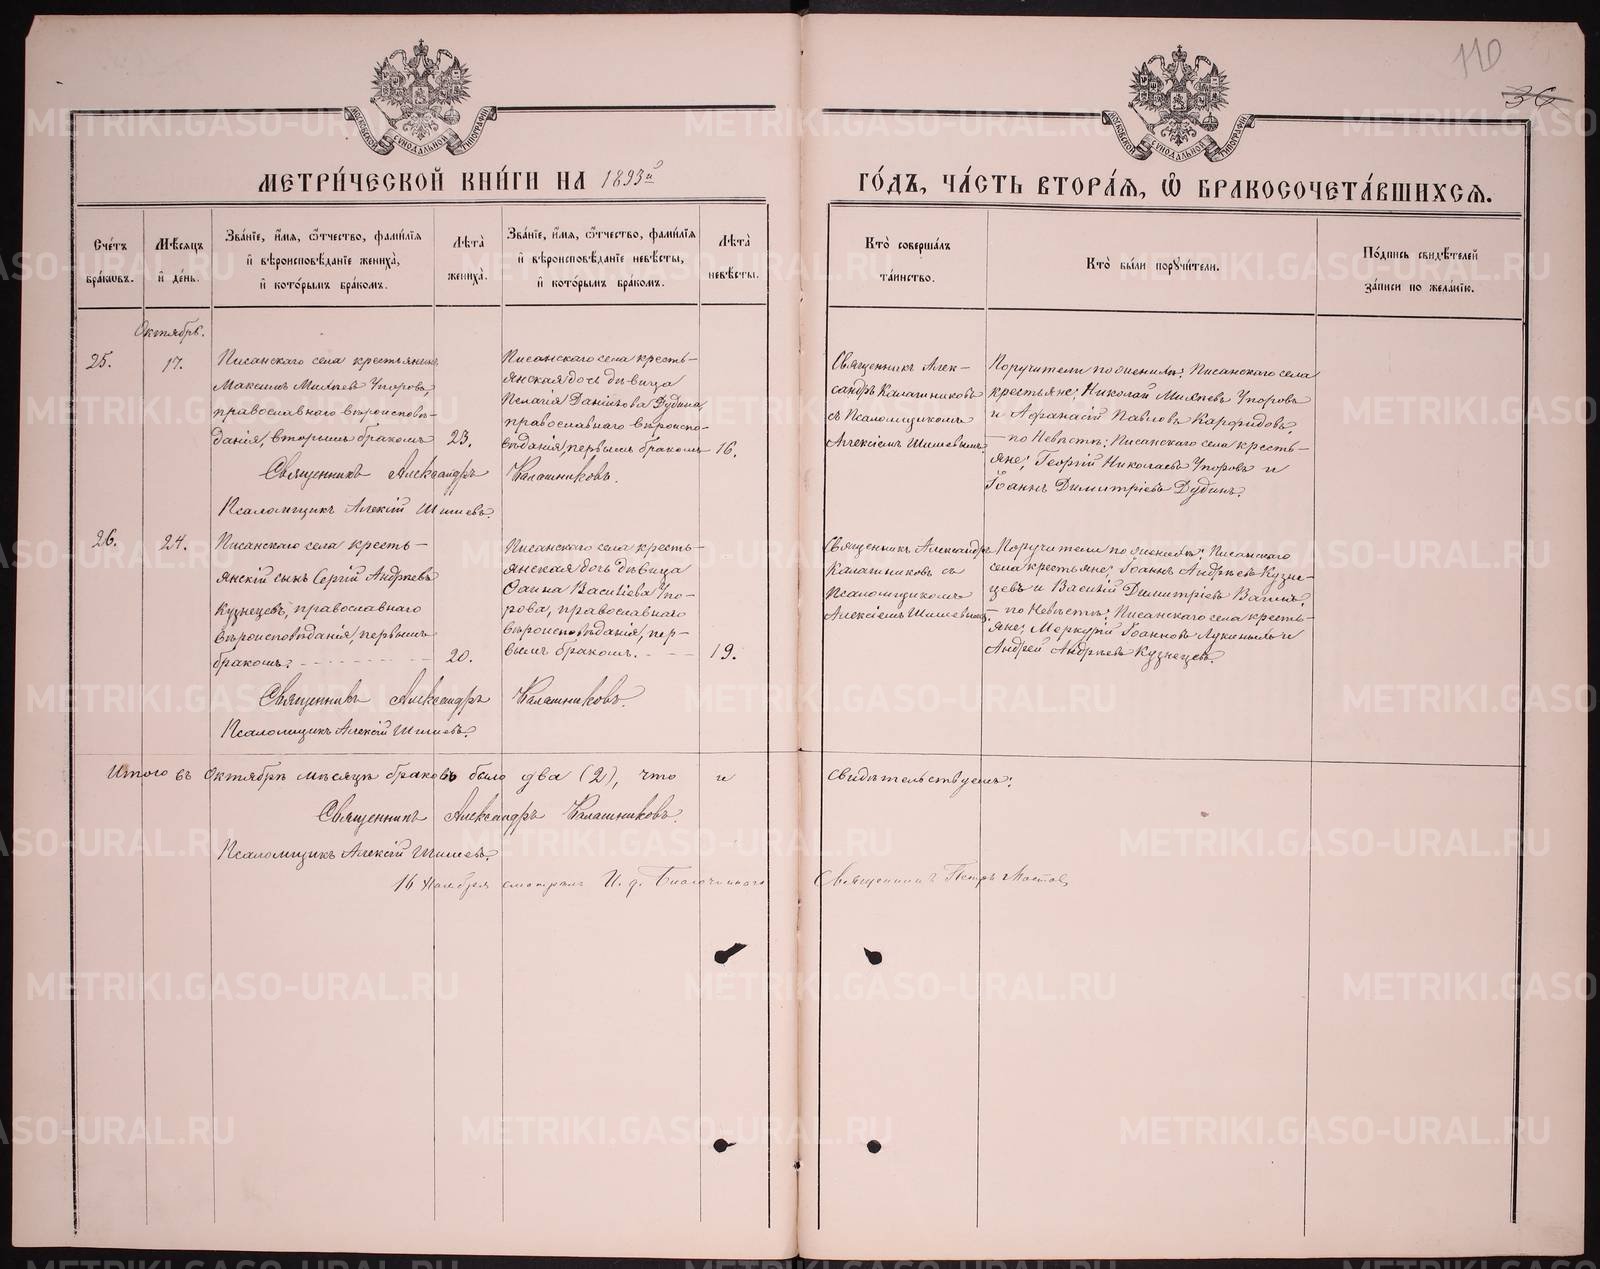 110
36
МОСКОВСКОЙ СѴНОДАЛЬНОЙ ТИПОГРАФІИ
МОСКОВСКОЙ СѴНОДАЛЬНОЙ ТИПОГРАФІИ
МЕТРИ́ЧЕСКОЙ КНИ́ГИ НА 1893й
ГО́ДЪ, ЧА́СТЬ ВТОРА́Ѧ, Ѽ БРАКОСОЧЕТА́ВШИХСѦ.
Сче́тъ бра́ковъ.
Мѣ́сяцъ и де́нь.
Зва́нїе, и́мя, ѻ́тчество, фами́лїя и вѣроисповѣ́данїе жениха̀, и кото́рымъ бра́комъ.
Лѣта̀ жениха̀.
Зва́нїе, и́мя, ѻ́тчество, фами́лїя и вѣроисповѣ́данїе невѣ́сты, и кото́рымъ бра́комъ.
Лѣта̀ невѣ́сты.
Кто̀ соверша́лъ та́инство.
Кто̀ бы́ли порꙋчи́тели.
По́дпись свидѣ́телей за́писи по жела́нїю.
Октябрь.
25.
17.
Писанскаго села крестьянинъ
Максимъ Михеевъ Упоровъ,
православнаго вѣроисповѣ-
данія, вторымъ бракомъ
23.
Писанскаго села кресть-
янская дочь дѣвица
Пелагія Даніилова Дудина,
православнаго вѣроиспо-
вѣданія, первымъ бракомъ
16.
Священникъ Алек-
сандръ Калашниковъ
съ Псаломщикомъ
Алексіемъ Шишевымъ.
Поручители по женихѣ: Писанскаго села
крестьяне; Николай Михеевъ Упоровъ
и Афанасій Павловъ Карфидовъ.
— по Невѣстѣ: Писанскаго села кресть-
яне; Георгій Николаевъ Упоровъ и
Іоаннъ Димитріевъ Дудинъ.
Священникъ Александръ Калашниковъ.
Псаломщикъ Алексій Шишевъ.
26.
24.
Писанскаго села кресть-
янскій сынъ Сергій Андреевъ
Кузнецевъ, православнаго
вѣроисповѣданія, первымъ
бракомъ.
20.
Писанскаго села кресть-
янская дочь дѣвица
Васильева Упо-
рова, православнаго
вѣроисповѣданія, пер-
вымъ бракомъ.
19.
Священникъ Александръ
Калашниковъ съ
Псаломщикомъ
Алексіемъ Шишевымъ.
Поручители по женихѣ: Писанскаго
села крестьяне: Іоаннъ Андреевъ Кузне-
цевъ и Василій Димитріевъ
— по Невѣстѣ: Писанскаго села кресть-
яне; Меркурій Іоанновъ Лукиныхъ и
Андрей Андреевъ Кузнецевъ.
Священникъ Александръ Калашниковъ.
Псаломщикъ Алексій Шишевъ.
Итого въ Октябрѣ мѣсяцѣ браковъ было два (2), что и свидѣтельствуемъ:
Священникъ Александръ Калашниковъ.
Псаломщикъ Алексій Шишевъ.
16 Ноября смотрѣлъ И. д. Благочиннаго Священникъ Петръ
METRIKI.GASO-URAL.RU